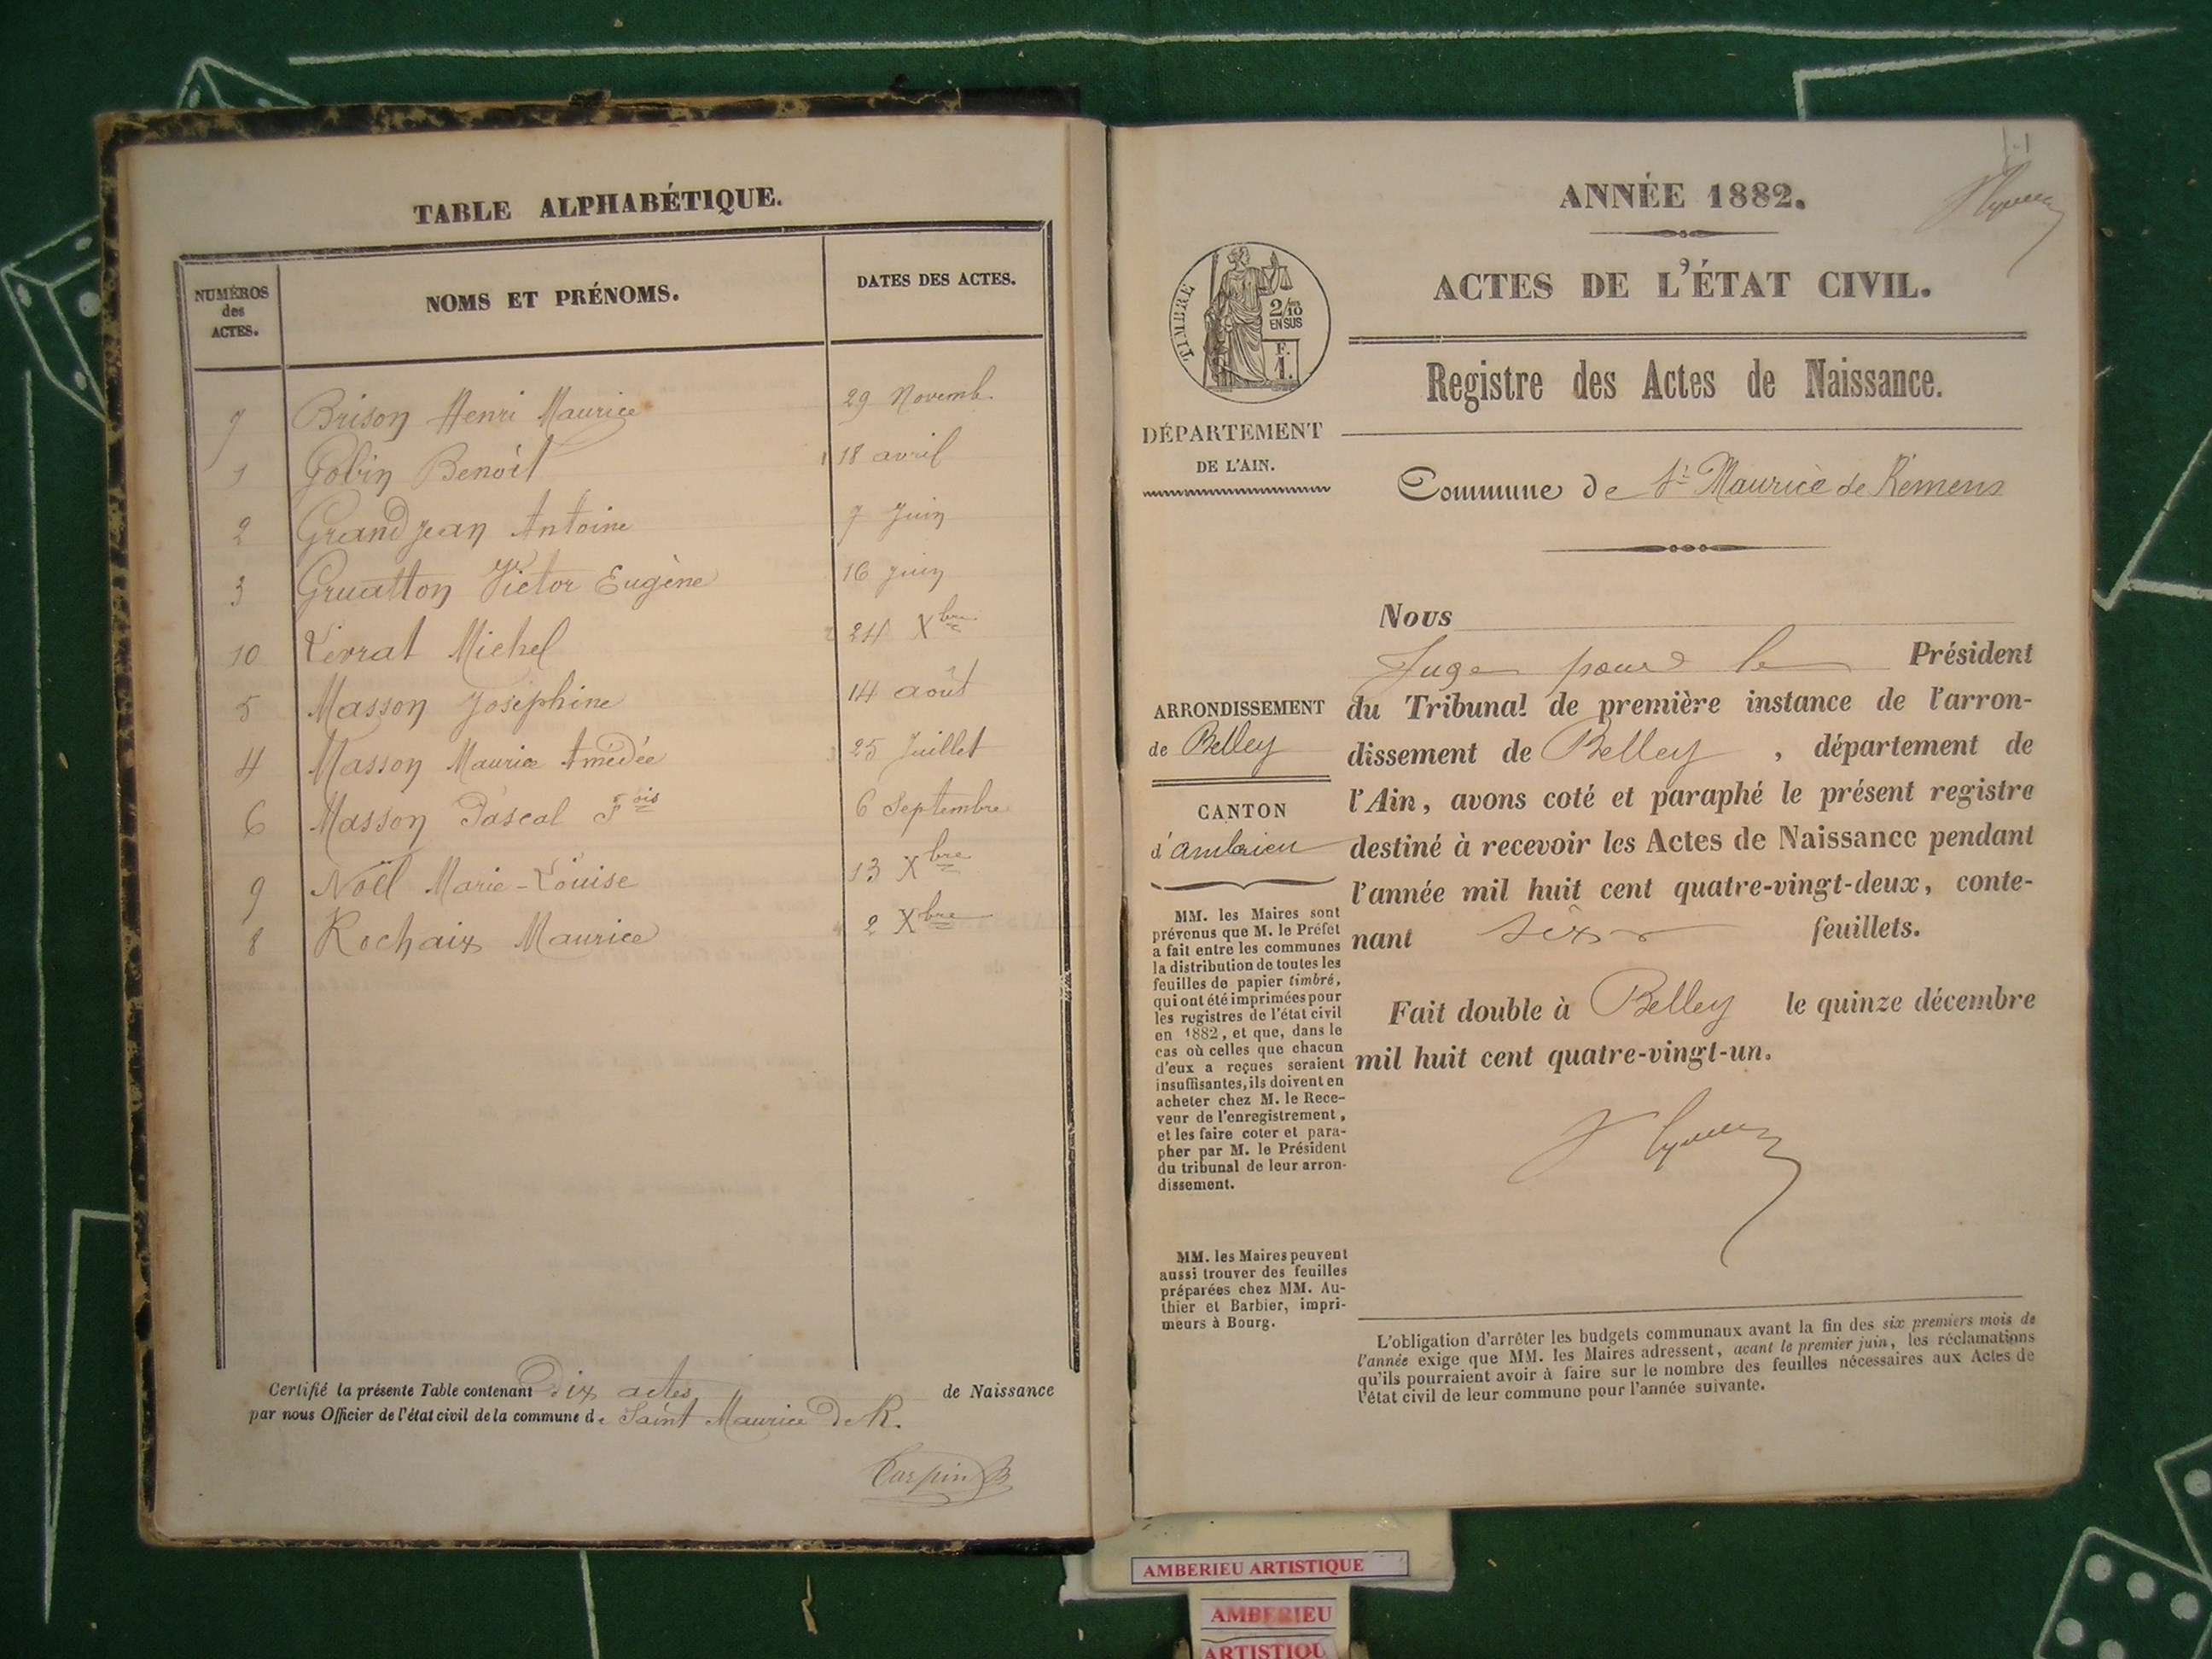 TABLE ALPHABÉTIQUE.
NUMÉROS des ACTES.
NOMS ET PRÉNOMS.
DATES DES ACTES.
7 Brison Henri Maurice 29 Novemb.
1 Gobin Benoît 18 avril
2 Grandjean Antoine 7 Juin
3 Gruatton Victor Eugène 16 Juin
10 Levrat Michel 24 Xbre
5 Masson Joséphine 14 août
4 Masson Maurice Amédée 25 Juillet
6 Masson Pascal Fois 6 Septembre
9 Noël Marie-Louise 13 Xbre
8 Rochaix Maurice 2 Xbre
Certifié la présente Table contenant Dix actes de Naissance
par nous Officier de l'état civil de la commune de Saint Maurice De R.
Carpin B
ANNÉE 1882.
ACTES DE L'ÉTAT CIVIL.
TIMBRE
2/10
EN SUS
F.
1.
Registre des Actes de Naissance.
DÉPARTEMENT
DE L'AIN.
Commune de St Maurice de Rémens
Nous
Juge pour le Président
ARRONDISSEMENT
de Belley
du Tribunal de première instance de l'arron-
dissement de Belley, département de
l'Ain, avons coté et paraphé le présent registre
destiné à recevoir les Actes de Naissance pendant
l'année mil huit cent quatre-vingt-deux, conte-
nant six feuillets.
CANTON
d'ambérieu
MM. les Maires sont
prévenus que M. le Préfet
a fait entre les communes
la distribution de toutes les
feuilles de papier timbré,
qui ont été imprimées pour
les registres de l'état civil
en 1882, et que, dans le
cas où celles que chacun
d'eux a reçues seraient
insuffisantes, ils doivent en
acheter chez M. le Rece-
veur de l'enregistrement,
et les faire coter et para-
pher par M. le Président
du tribunal de leur arron-
dissement.
Fait double à Belley le quinze décembre
mil huit cent quatre-vingt-un.
MM. les Maires peuvent
aussi trouver des feuilles
préparées chez MM. Au-
thier et Barbier, impri-
meurs à Bourg.
L'obligation d'arrêter les budgets communaux avant la fin des six premiers mois de
l'année exige que MM. les Maires adressent, avant le premier juin, les réclamations
qu'ils pourraient avoir à faire sur le nombre des feuilles nécessaires aux Actes de
l'état civil de leur commune pour l'année suivante.
AMBERIEU ARTISTIQUE
AMBERIEU
ARTISTIQU